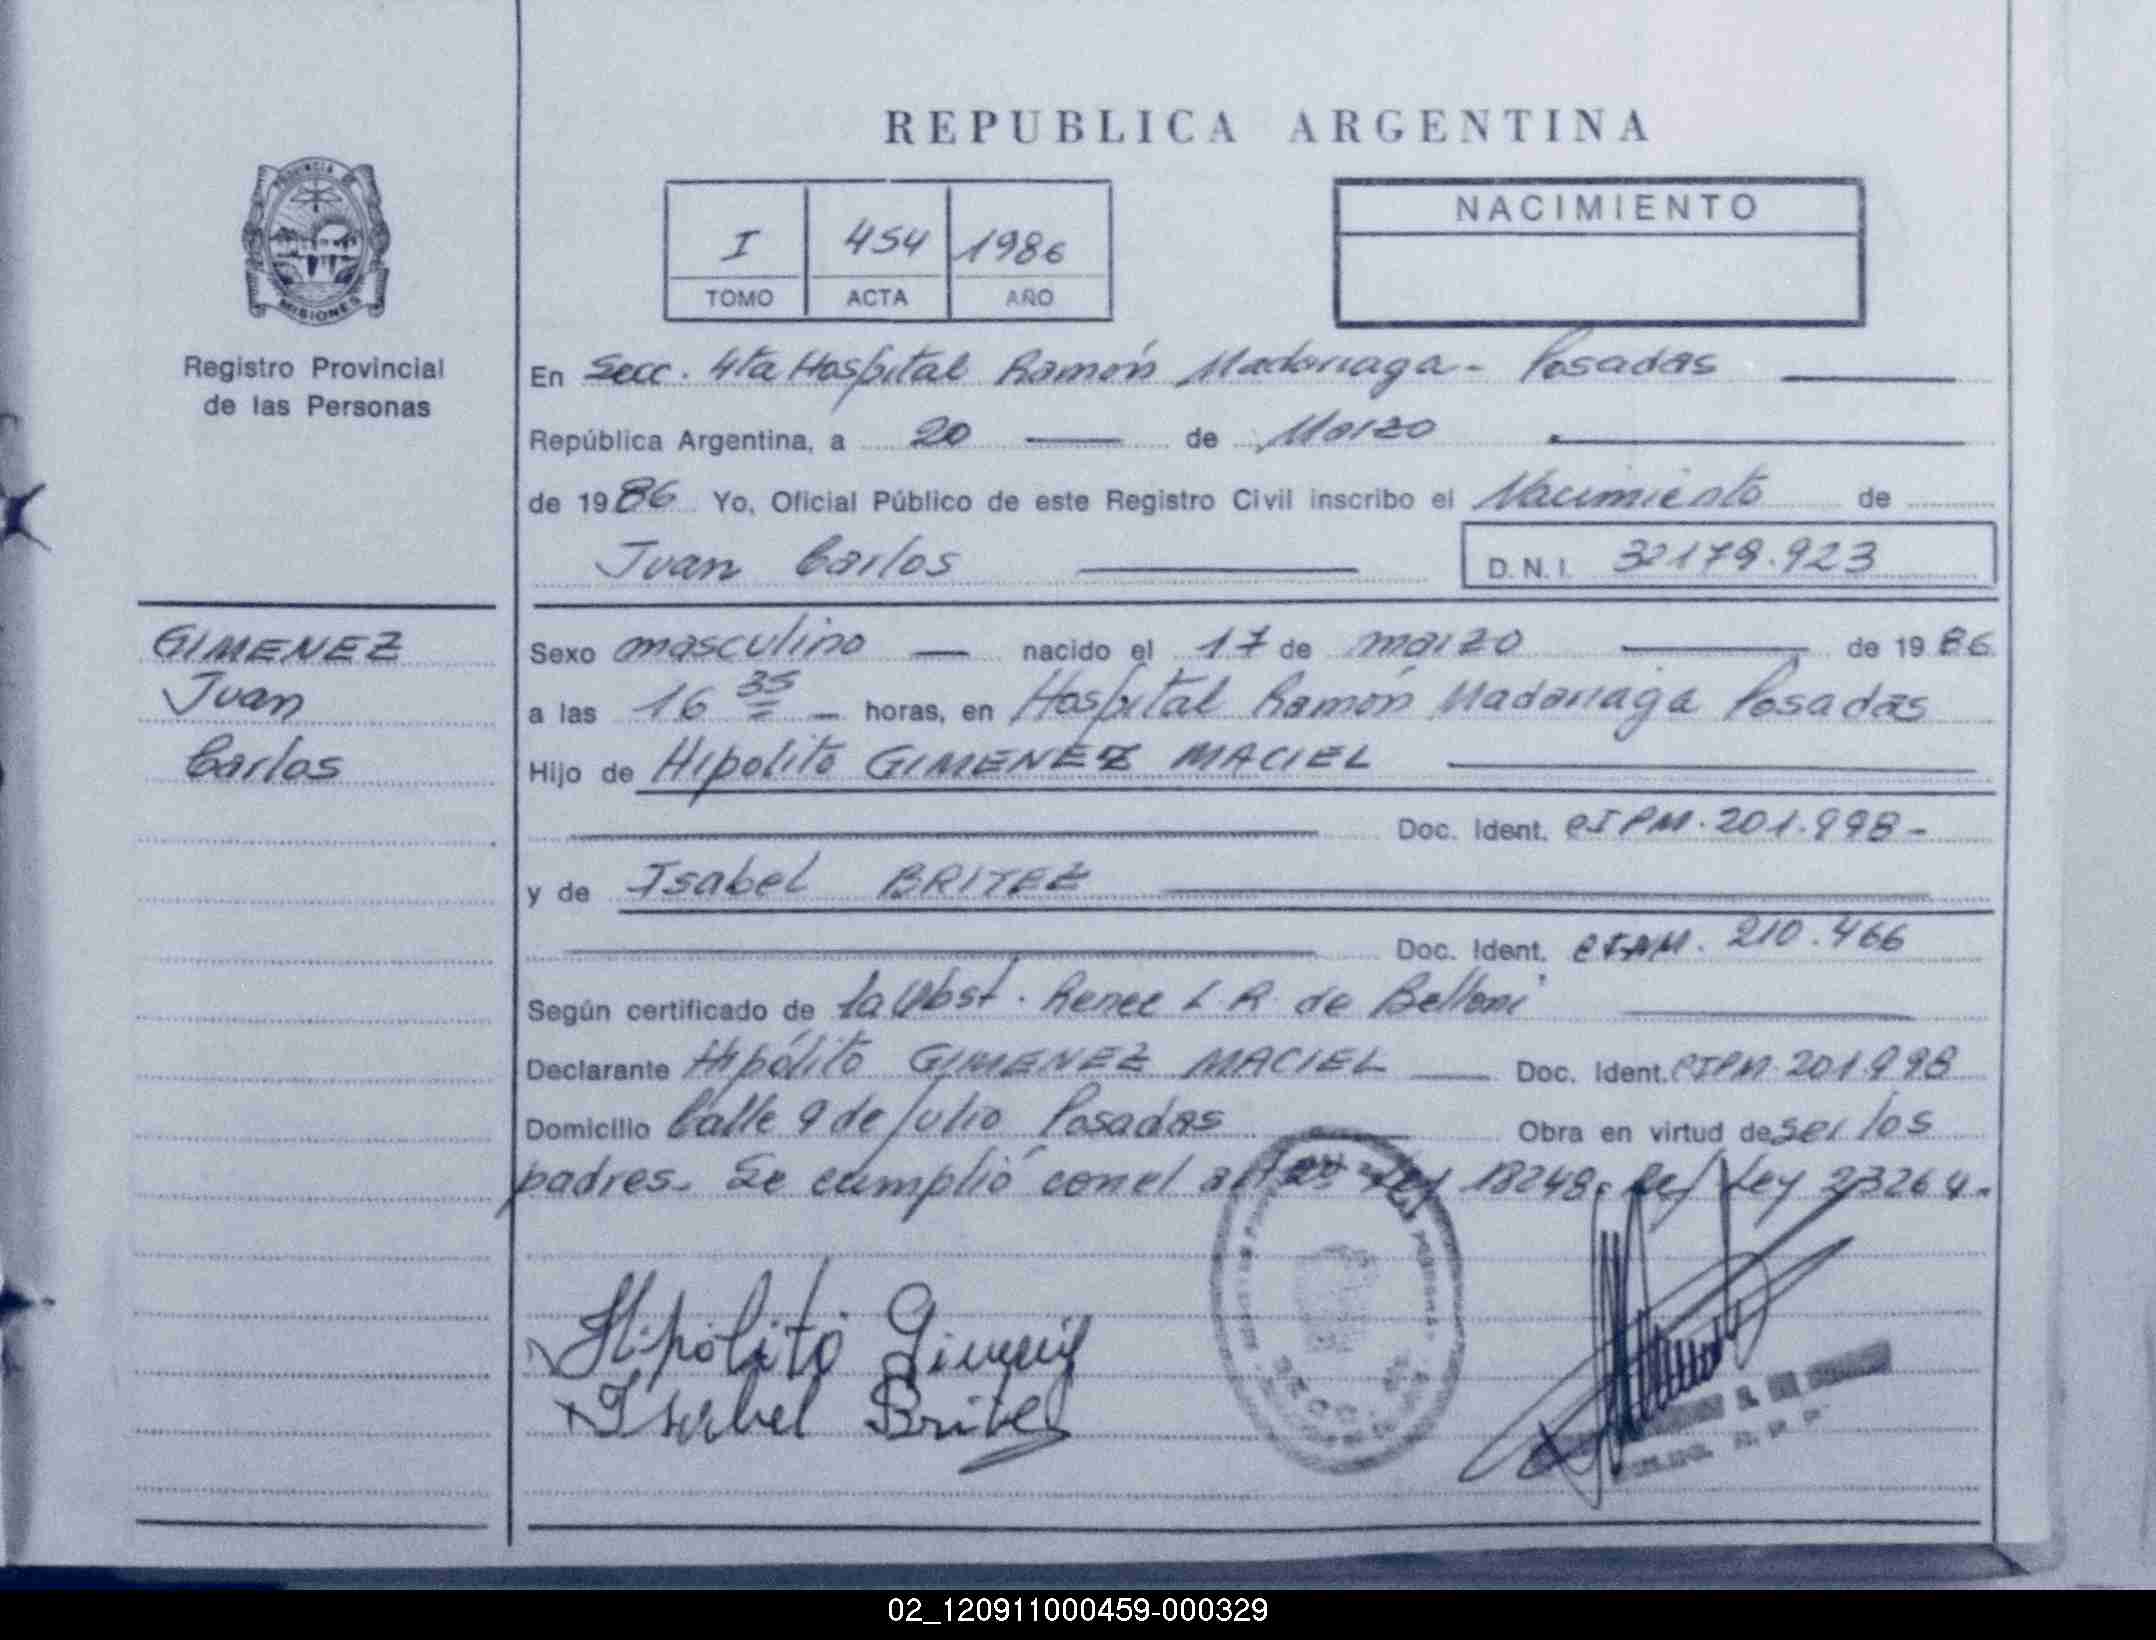 REPUBLICA ARGENTINA
PROVINCIA DE
MISIONES
Registro Provincial
de las Personas
I 454 1986
TOMO ACTA AÑO
NACIMIENTO
En Secc. 4ta Hospital Ramón Madariaga - Posadas
República Argentina, a 20 de Marzo
de 1986 Yo, Oficial Público de este Registro Civil inscribo el Nacimiento de
Juan Carlos D.N.I. 32179.923
GIMENEZ
Juan
Carlos
Sexo masculino nacido el 17 de marzo de 1986
a las 16 35 horas, en Hospital Ramón Madariaga Posadas
Hijo de Hipolito GIMENEZ MACIEL
Doc. Ident. CIPM. 201.998 -
y de Isabel BRITEZ
Doc. Ident. CIPM. 210.466
Según certificado de la Obst. Renee L R de Belloni
Declarante Hipólito GIMENEZ MACIEL Doc. Ident. CIPM 201998
Domicilio Calle 9 de Julio Posadas Obra en virtud de ser los
padres. Se cumplió con el art Ley 18248. Ref Ley 23264.
Hipólito
Isabel Britez
02_120911000459-000329